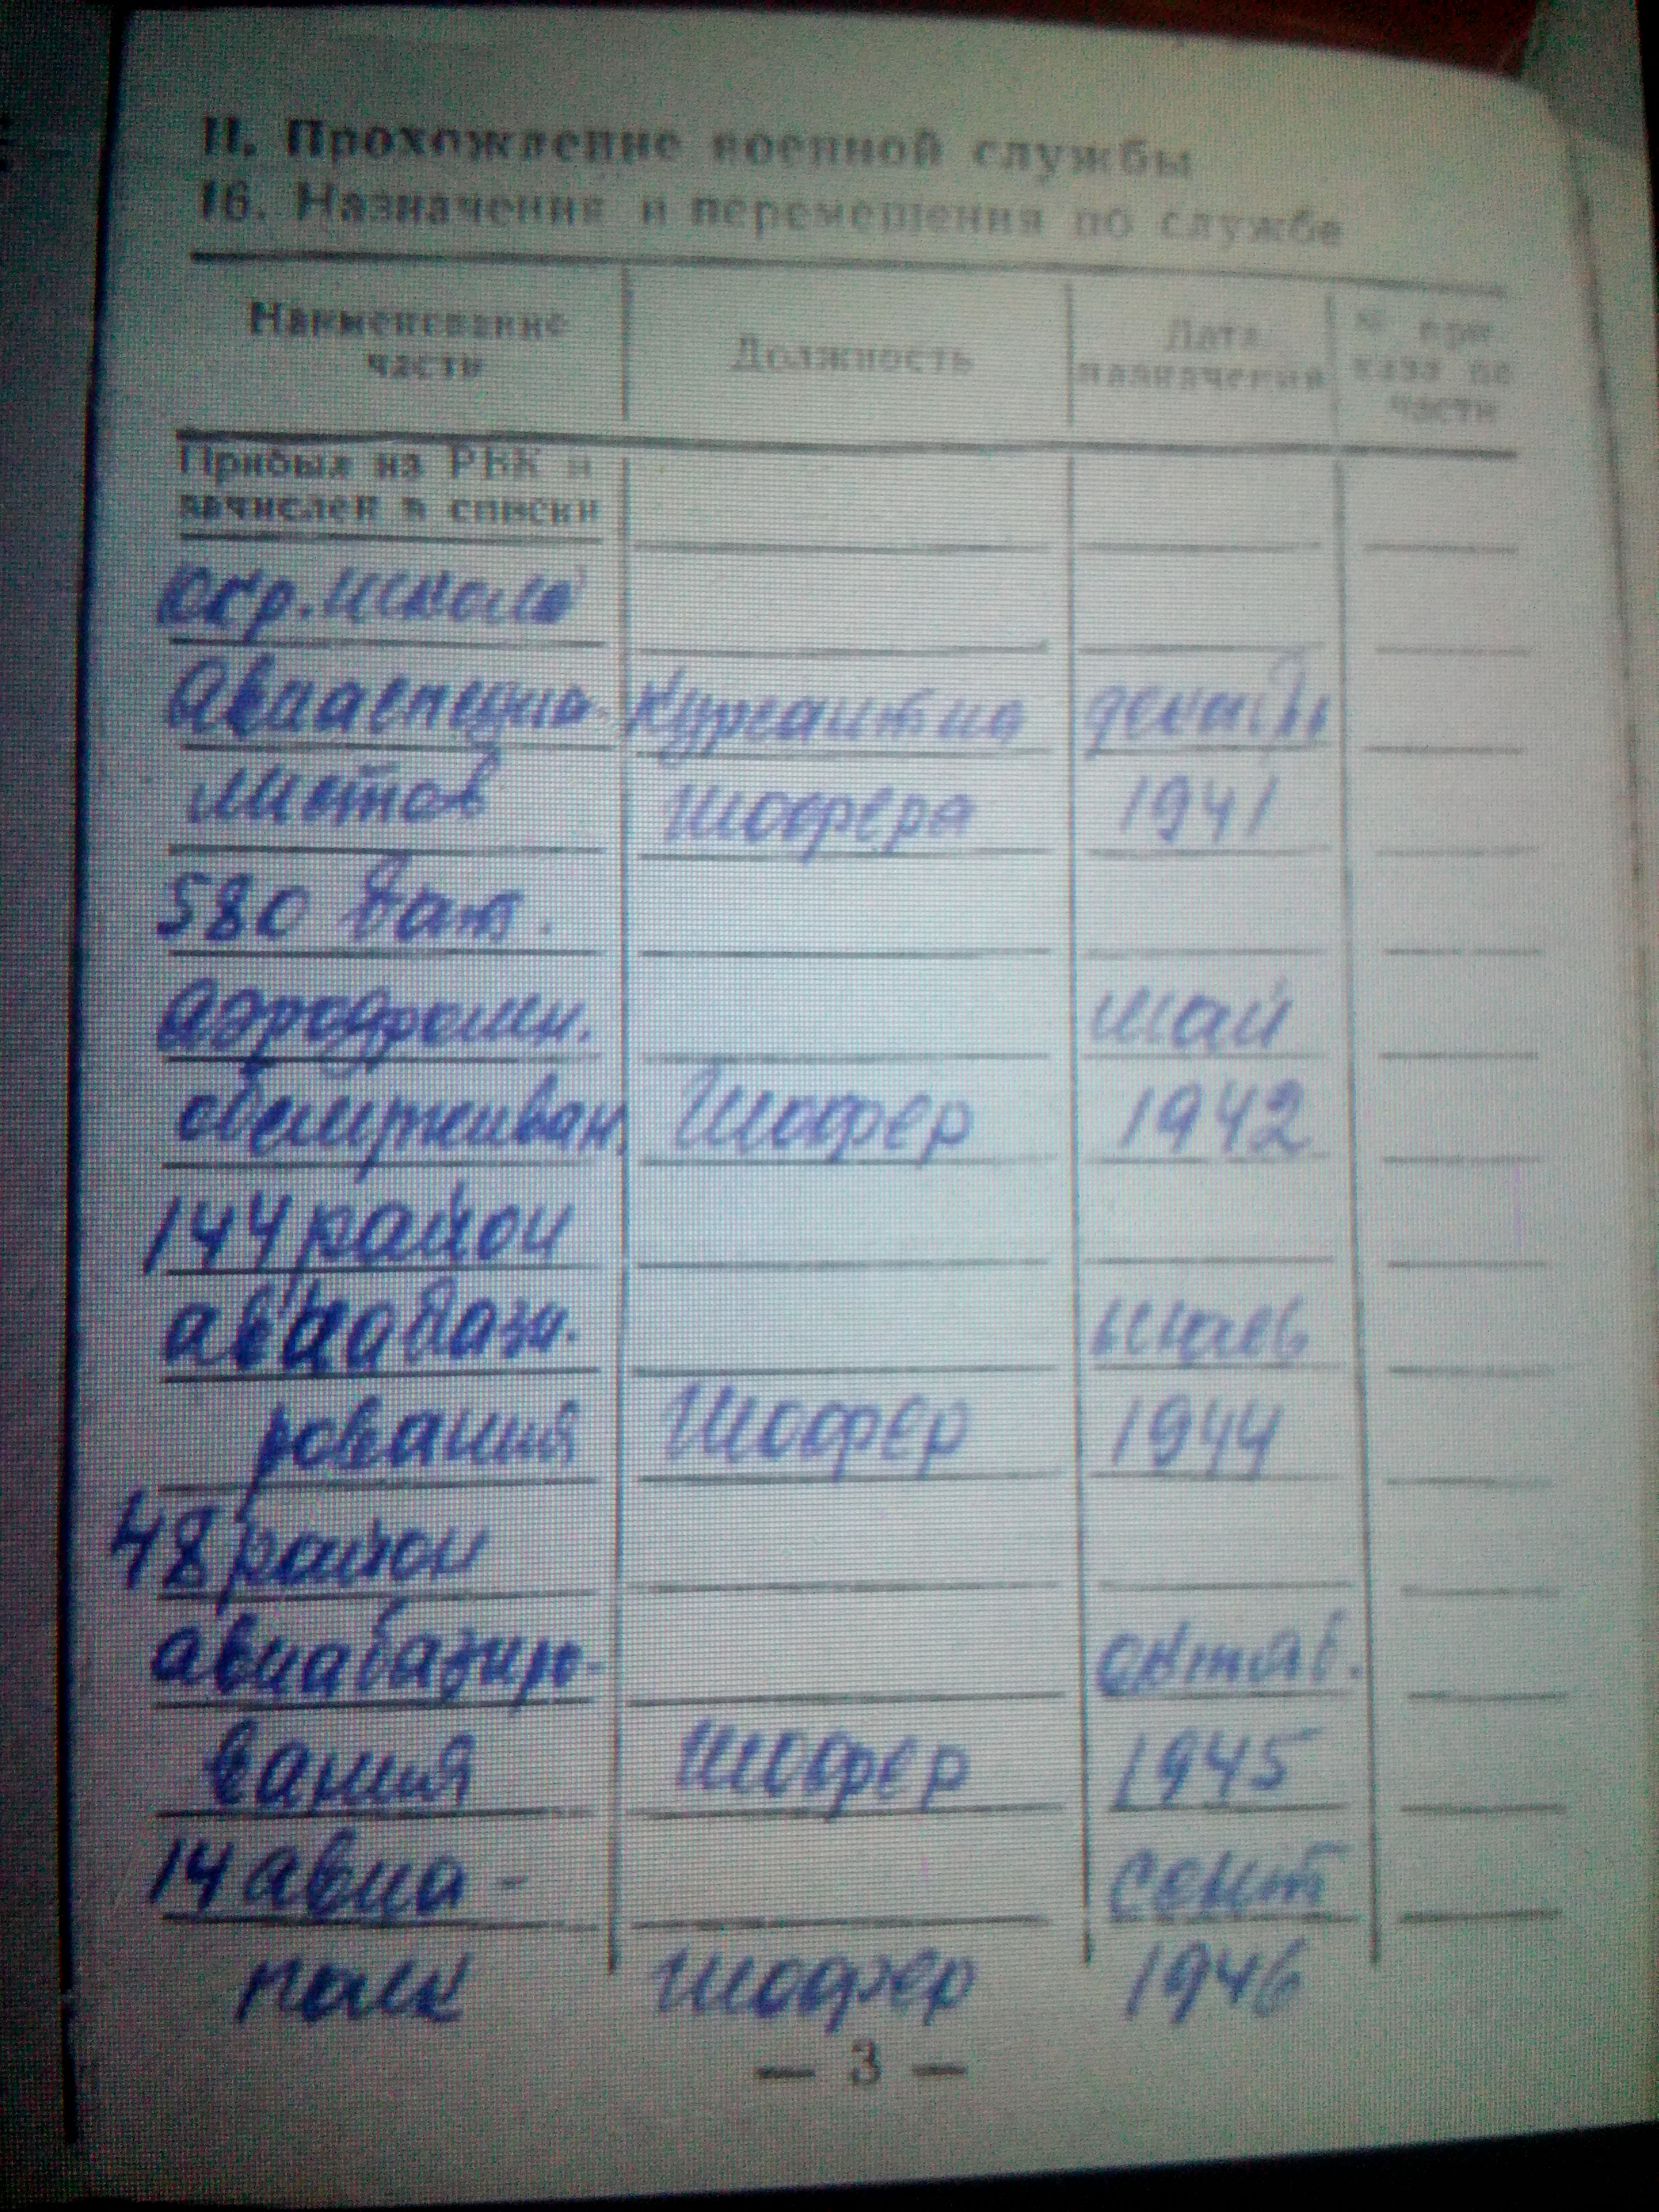 II. Прохождение военной службы
16. Назначения и перемещения по службе
Наименование части Должность Дата назначения № приказа по части
Прибыл на РВК и
зачислен в списки
окр. школа
Авиаспециа- Курсантка декабрь
листов шофера 1941
580 бат.
аэродромн. май
обслуживан. Шофер 1942
144 район
авиабази-
рования Шофер 1944
48 район
авиабазиро- октяб.
вания шофер 1945
14 авиа- сент
полк шофер 1946
— 3 —